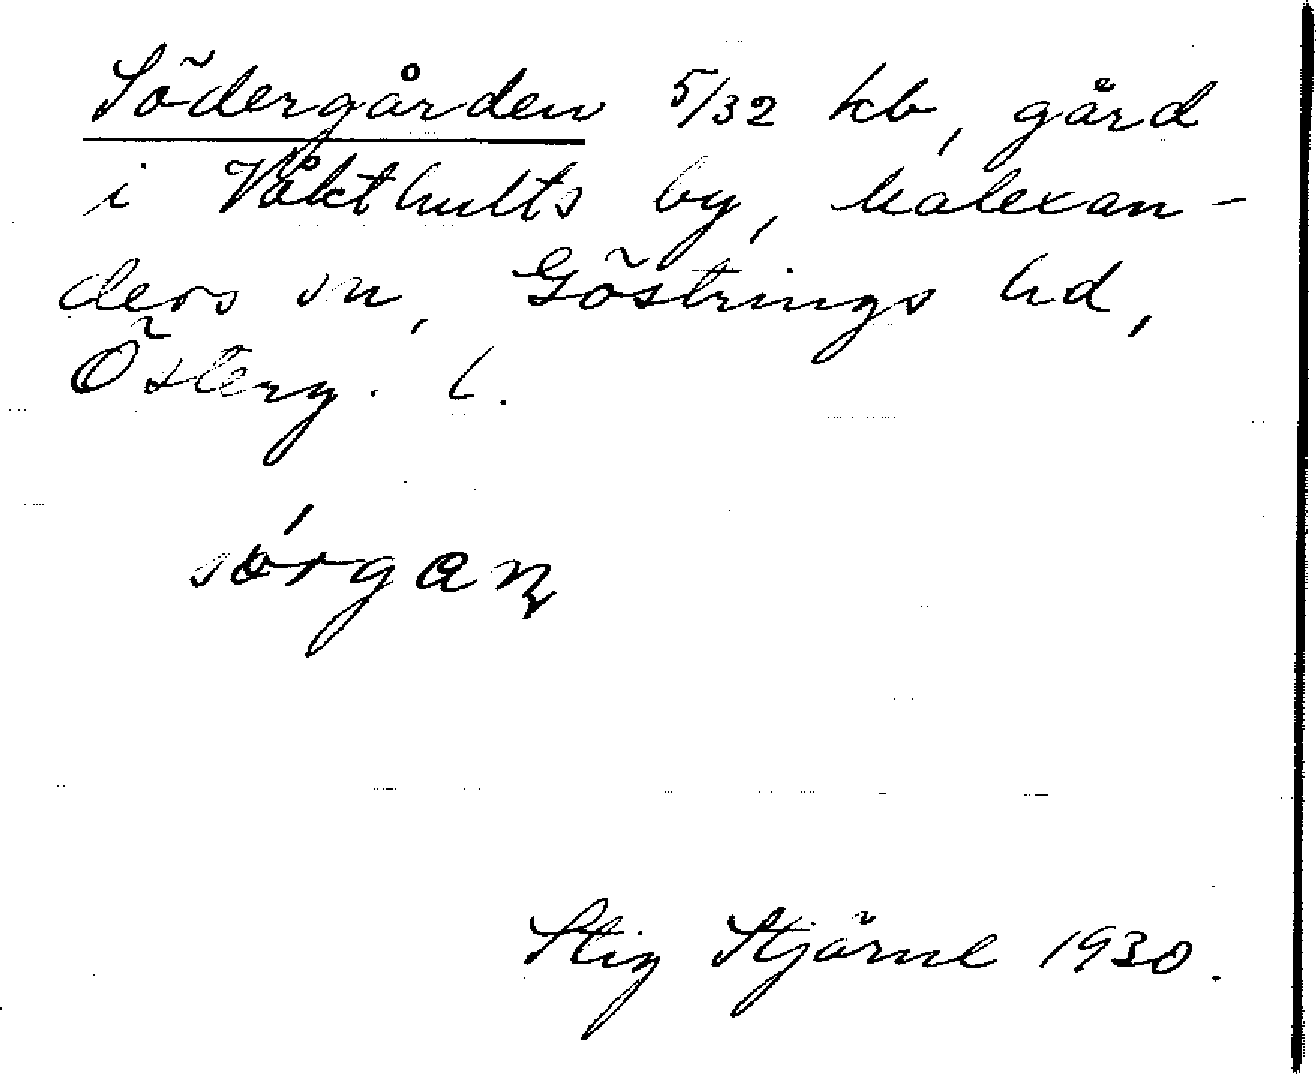 Södergården 5/32 kb, gård
i Våkthults by, Malexan-
ders sn, Göstrings hd,
Österg. l.
sórgan
Stig Stjärne 1930.